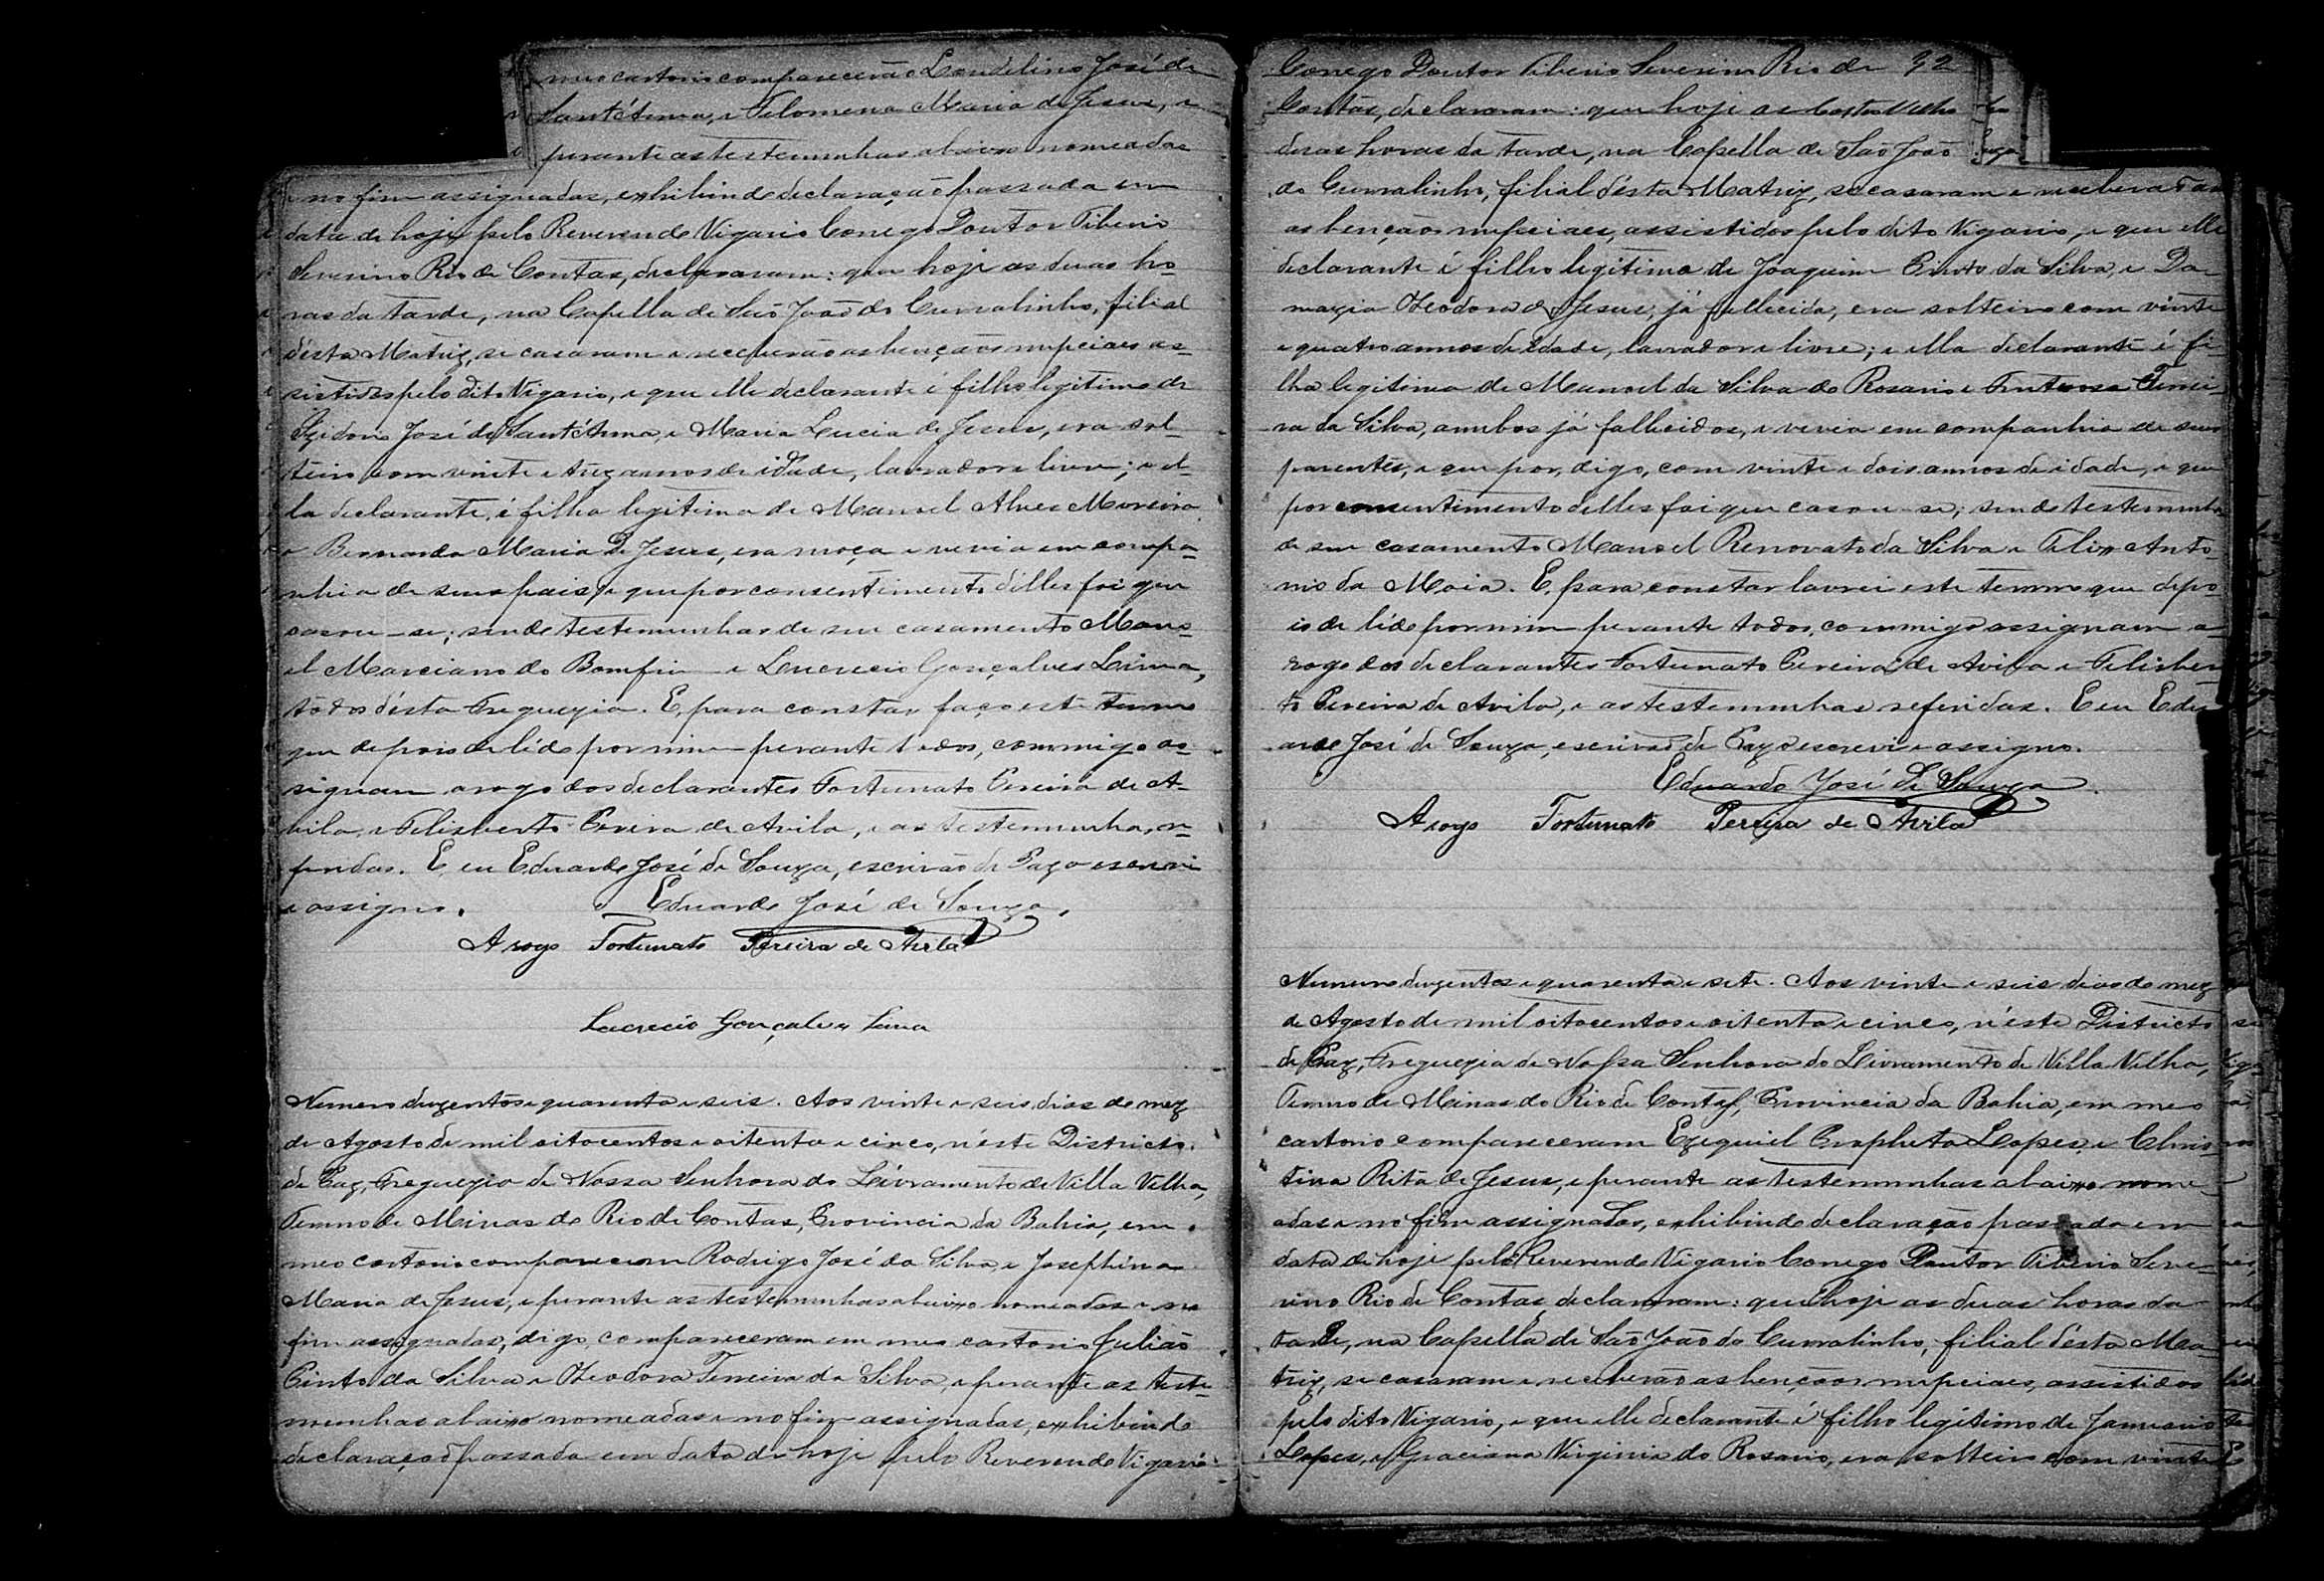 meo cartorio comparecerão Landelino José de
Sant'Anna, e Filomena Maria de Jesus, e
perante as testemunhas abaixo nomeadas
e no fim assignadas, exhibindo declaração passada em
data de hoje pelo Reverendo Vigario Conego Doutor Tiberio
Severino Rio de Contas, declararam: que hoje as duas ho-
ras da tarde, na Capella de São João do Curralinho, filial
d'ésta Matriz, se casaram e receberão as bençãos nupciaes as-
sistidos pelo dito Vigario, e que elle declarante é filho legitimo de
José de Sant'Anna, e Maria Lucia de Jesus, era sol-
teiro com vinte e trez annos de idade, lavrador e livre; e el-
la declarante, é filha legitima de Manoel Alves Moreira
e Bernarda Maria de Jesus, era moça e vivia em compa-
nhia de seus pais, e que por consentimento d'elles foi que
casou-se; sendo testemunhas de seu casamento Mano-
el Marciano do Bomfim e Lucrecio Gonçalves Lima,
todos d'ésta Freguezia. E, para constar, faço este termo
que depois de lido por mim perante todos, commigo as-
signam a rogo dos declarantes Fortunato Pereira de A-
vila, e Felisberto Pereira de Avila, e as testemunhas, re-
feridas. E, eu Eduardo José de Souza, escrivão de Paz o escrevi
e assigno. Eduardo José de Souza,
A rogo Fortunato Pereira de Avila
Lucrecio Gonçalves Lima
Numero duzentos e quarenta e seis. Aos vinte e seis dias do mez
de Agosto de mil oitocentos e oitenta e cinco, n'éste Districto
de Paz, Freguezia de Nossa Senhora do Livramento de Villa Velha,
Termo de Minas do Rio de Contas, Provincia da Bahia, em
meo cartorio compareceram Rodrigo José da Silva, e Josephina
Maria de Jesus, e perante as testemunhas abaixo nomeadas e no
fim assignadas, digo, compareceram em meo cartorio Julião
Pinto da Silva e Theodora Ferreira da Silva, e perante as teste-
munhas abaixo nomeadas e no fim assignadas, exhibindo
declaração passada em data de hoje pelo Reverendo Vigario
Conego Doutor Tiberio Severino Rio de 92
Contas, declararam: que hoje as Castro Velho
duas horas da tarde, na Capella de São João
do Curralinho, filial d'ésta Matriz, se casaram e receberão as
as bençãos nupciaes, assistidos pelo dito Vigario, e que elle
declarante é filho legitimo de Joaquim Pinto da Silva, e Da-
mazia Theodora de Jesus, já fallecida, era solteiro com vinte
e quatro annos de idade, lavrador e livre; e ella declarante é fi-
lha legitima de Manoel da Silva do Rosario e Fructuosa
da Silva, ambos já fallecidos, e vivia em companhia de seus
parentes, e que por, digo, com vinte e dois annos de idade, e que
por consentimento delles foi que casou-se; sendo testemunhas
de seu casamento Manoel Renovato da Silva e Felix Anto-
nio da Maia. E, para constar lavrei este termo que depo-
is de lido por mim perante todos, commigo assignam a
rogo dos declarantes Fortunato Pereira de Avila e Felisber-
to Pereira de Avila, e as testemunhas referidas. E eu Edu-
ardo José de Souza, escrivão de Paz o escrevi e assigno.
Eduardo José de Souza.
A rogo Fortunato Pereira de Avila
Numero duzentos e quarenta e sete. Aos vinte e seis dias do mez
de Agosto de mil oitocentos e oitenta e cinco, n'éste Districto
de Paz, Freguezia de Nossa Senhora do Livramento de Villa Velha,
Termo de Minas do Rio de Contas, Provincia da Bahia, em meo
cartorio compareceram Ezequiel Lopes, e Chris-
tina Rita de Jesus, e perante as testemunhas abaixo nome-
adas e no fim assignadas, exhibindo declaração passada em
data de hoje pelo Reverendo Vigario Conego Doutor Tiberio Seve-
rino Rio de Contas, declararam: que hoje as duas horas da
tarde, na Capella de São João do Curralinho, filial d'ésta Ma-
triz, se casaram e receberão as bençãos nupciaes, assistidos
pelo dito Vigario, e que elle declarante é filho legítimo de Januario
Lopes, e Graciana Virginia do Rosario, era solteiro com vinte